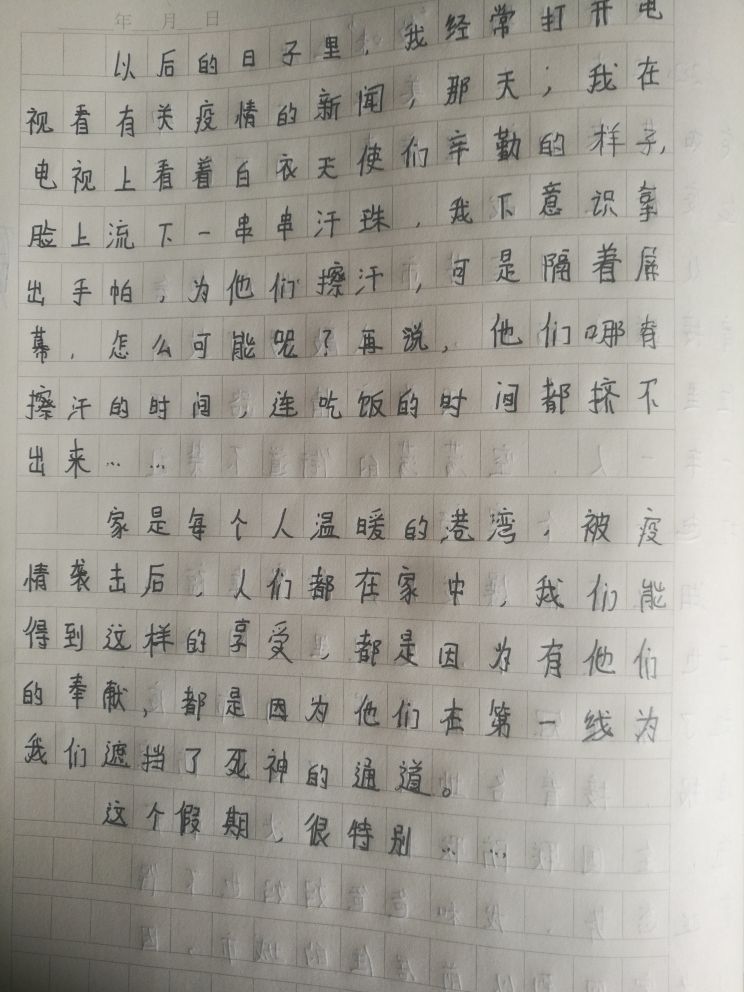 年 月 日
以后的日子里，我经常打开电
视看有关疫情的新闻，那天，我在
电视上看着白衣天使们辛勤的样子，
脸上流下一串串汗珠，我下意识拿
出手帕，为他们擦汗，可是隔着屏
幕，怎么可能呢？再说，他们哪有
擦汗的时间，连吃饭的时间都挤不
出来……
家是每个人温暖的港湾，被疫
情袭击后，人们都在家中，我们能
得到这样的享受，都是因为有他们
的奉献，都是因为他们在第一线为
我们遮挡了死神的通道。
这个假期，很特别……